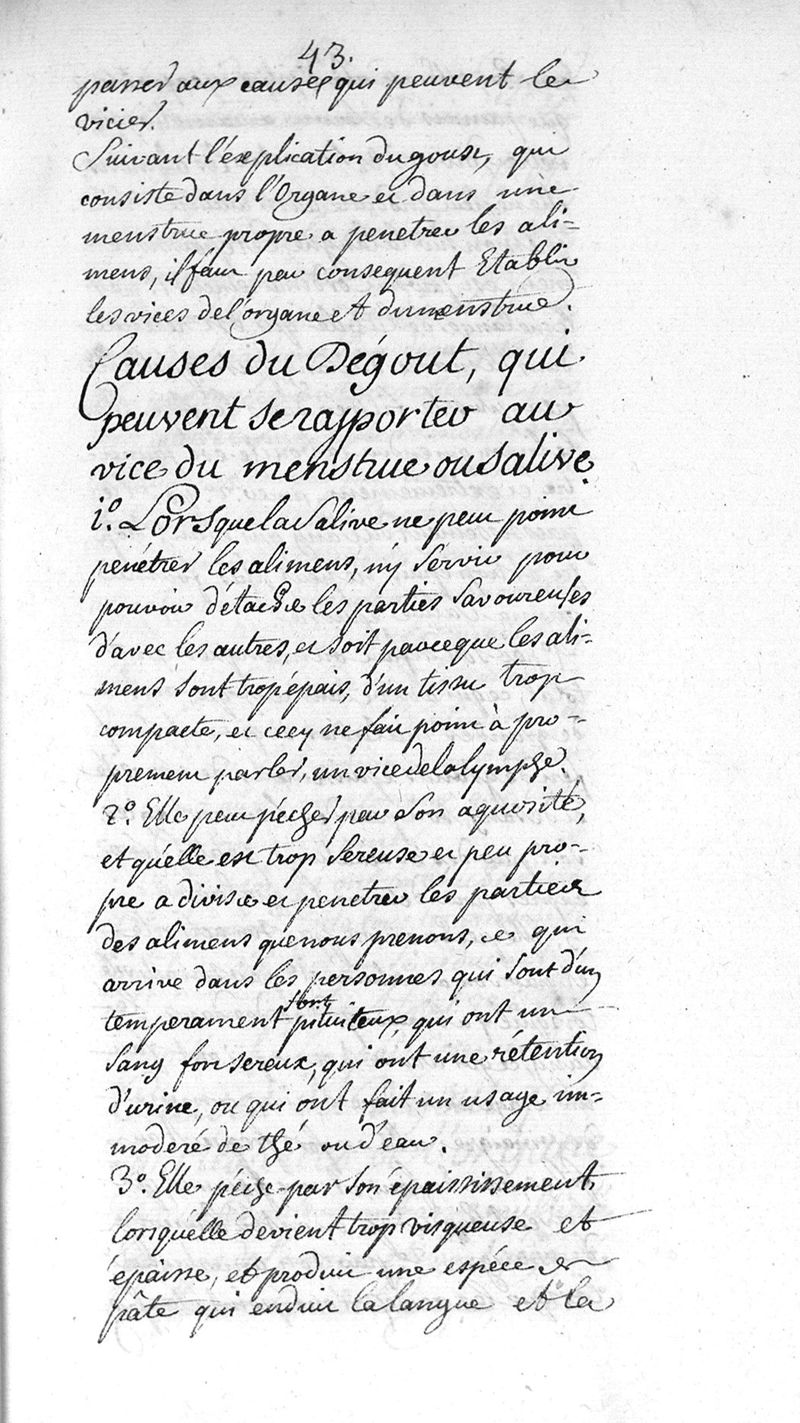 43.
passer aux causes qui peuvent le
vicier.
Suivant l'éxplication du goust, qui
consiste dans l'Organe et dans une
menstrue propre a penetrer les ali-
mens, il faut par consequent Etablir
les vices de l'organe et du menstrue.
Causes du Dégout, qui
peuvent se rapporter au
vice du menstrue ou Salive.
1.º Lorsque la Salive ne peut point
penétrer les alimens, n'y servir pour
pouvoir détacher les parties Savoureuses
d'avec les autres, et soit parceque les ali-
mens sont trop épais, d'un tissu trop
compacte, et cecy ne fait point à pro-
prement parler, un vice de la lymphe.
2.º Elle peut pécher par son aquosité,
et quélle est trop sereuse et peu pro-
pre a diviser et penetrer les parties
des alimens que nous prenons, ce qui
arrive dans les personnes qui sont d'un
temperament fort pituiteux, qui ont un
sang fort sereux, qui ont une rétention
d'urine, ou qui ont fait un usage im-
moderé de thé ou d'eau.
3.º Elle péche par son épaississement,
lorsquélle devient trop visqueuse et
épaisse, et produit une espéce de
pâte qui enduit la langue et la